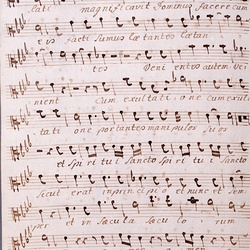 cati magnificavit Dominus facere cum
eis facti sumus lætantes lætan
tes Venientes autem veni
nient cum exultati one cum exul
tati one portantes manipulos suos
et spiritui Sancto spiritui Sancto
sicut erat in principio et nunc et sem
per et in sæcula sæculo rum